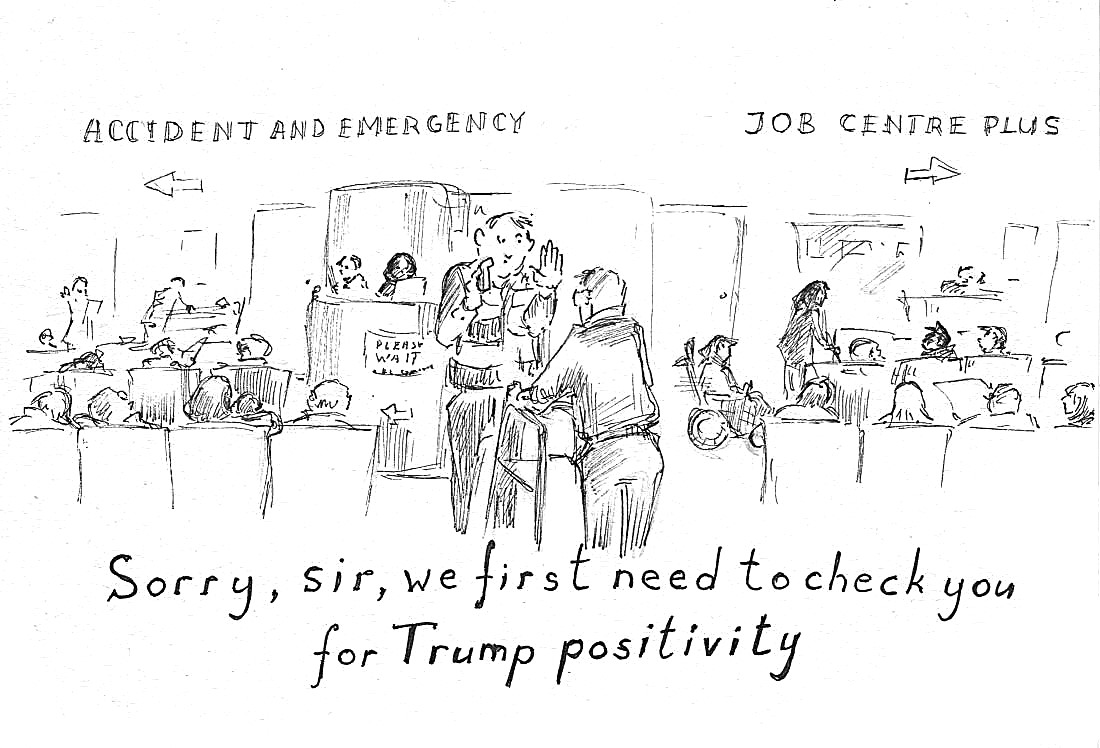 ACCIDENT AND EMERGENCY
JOB CENTRE PLUS
PLEASE
WAIT
Sorry, sir, we first need to check you
for Trump positivity